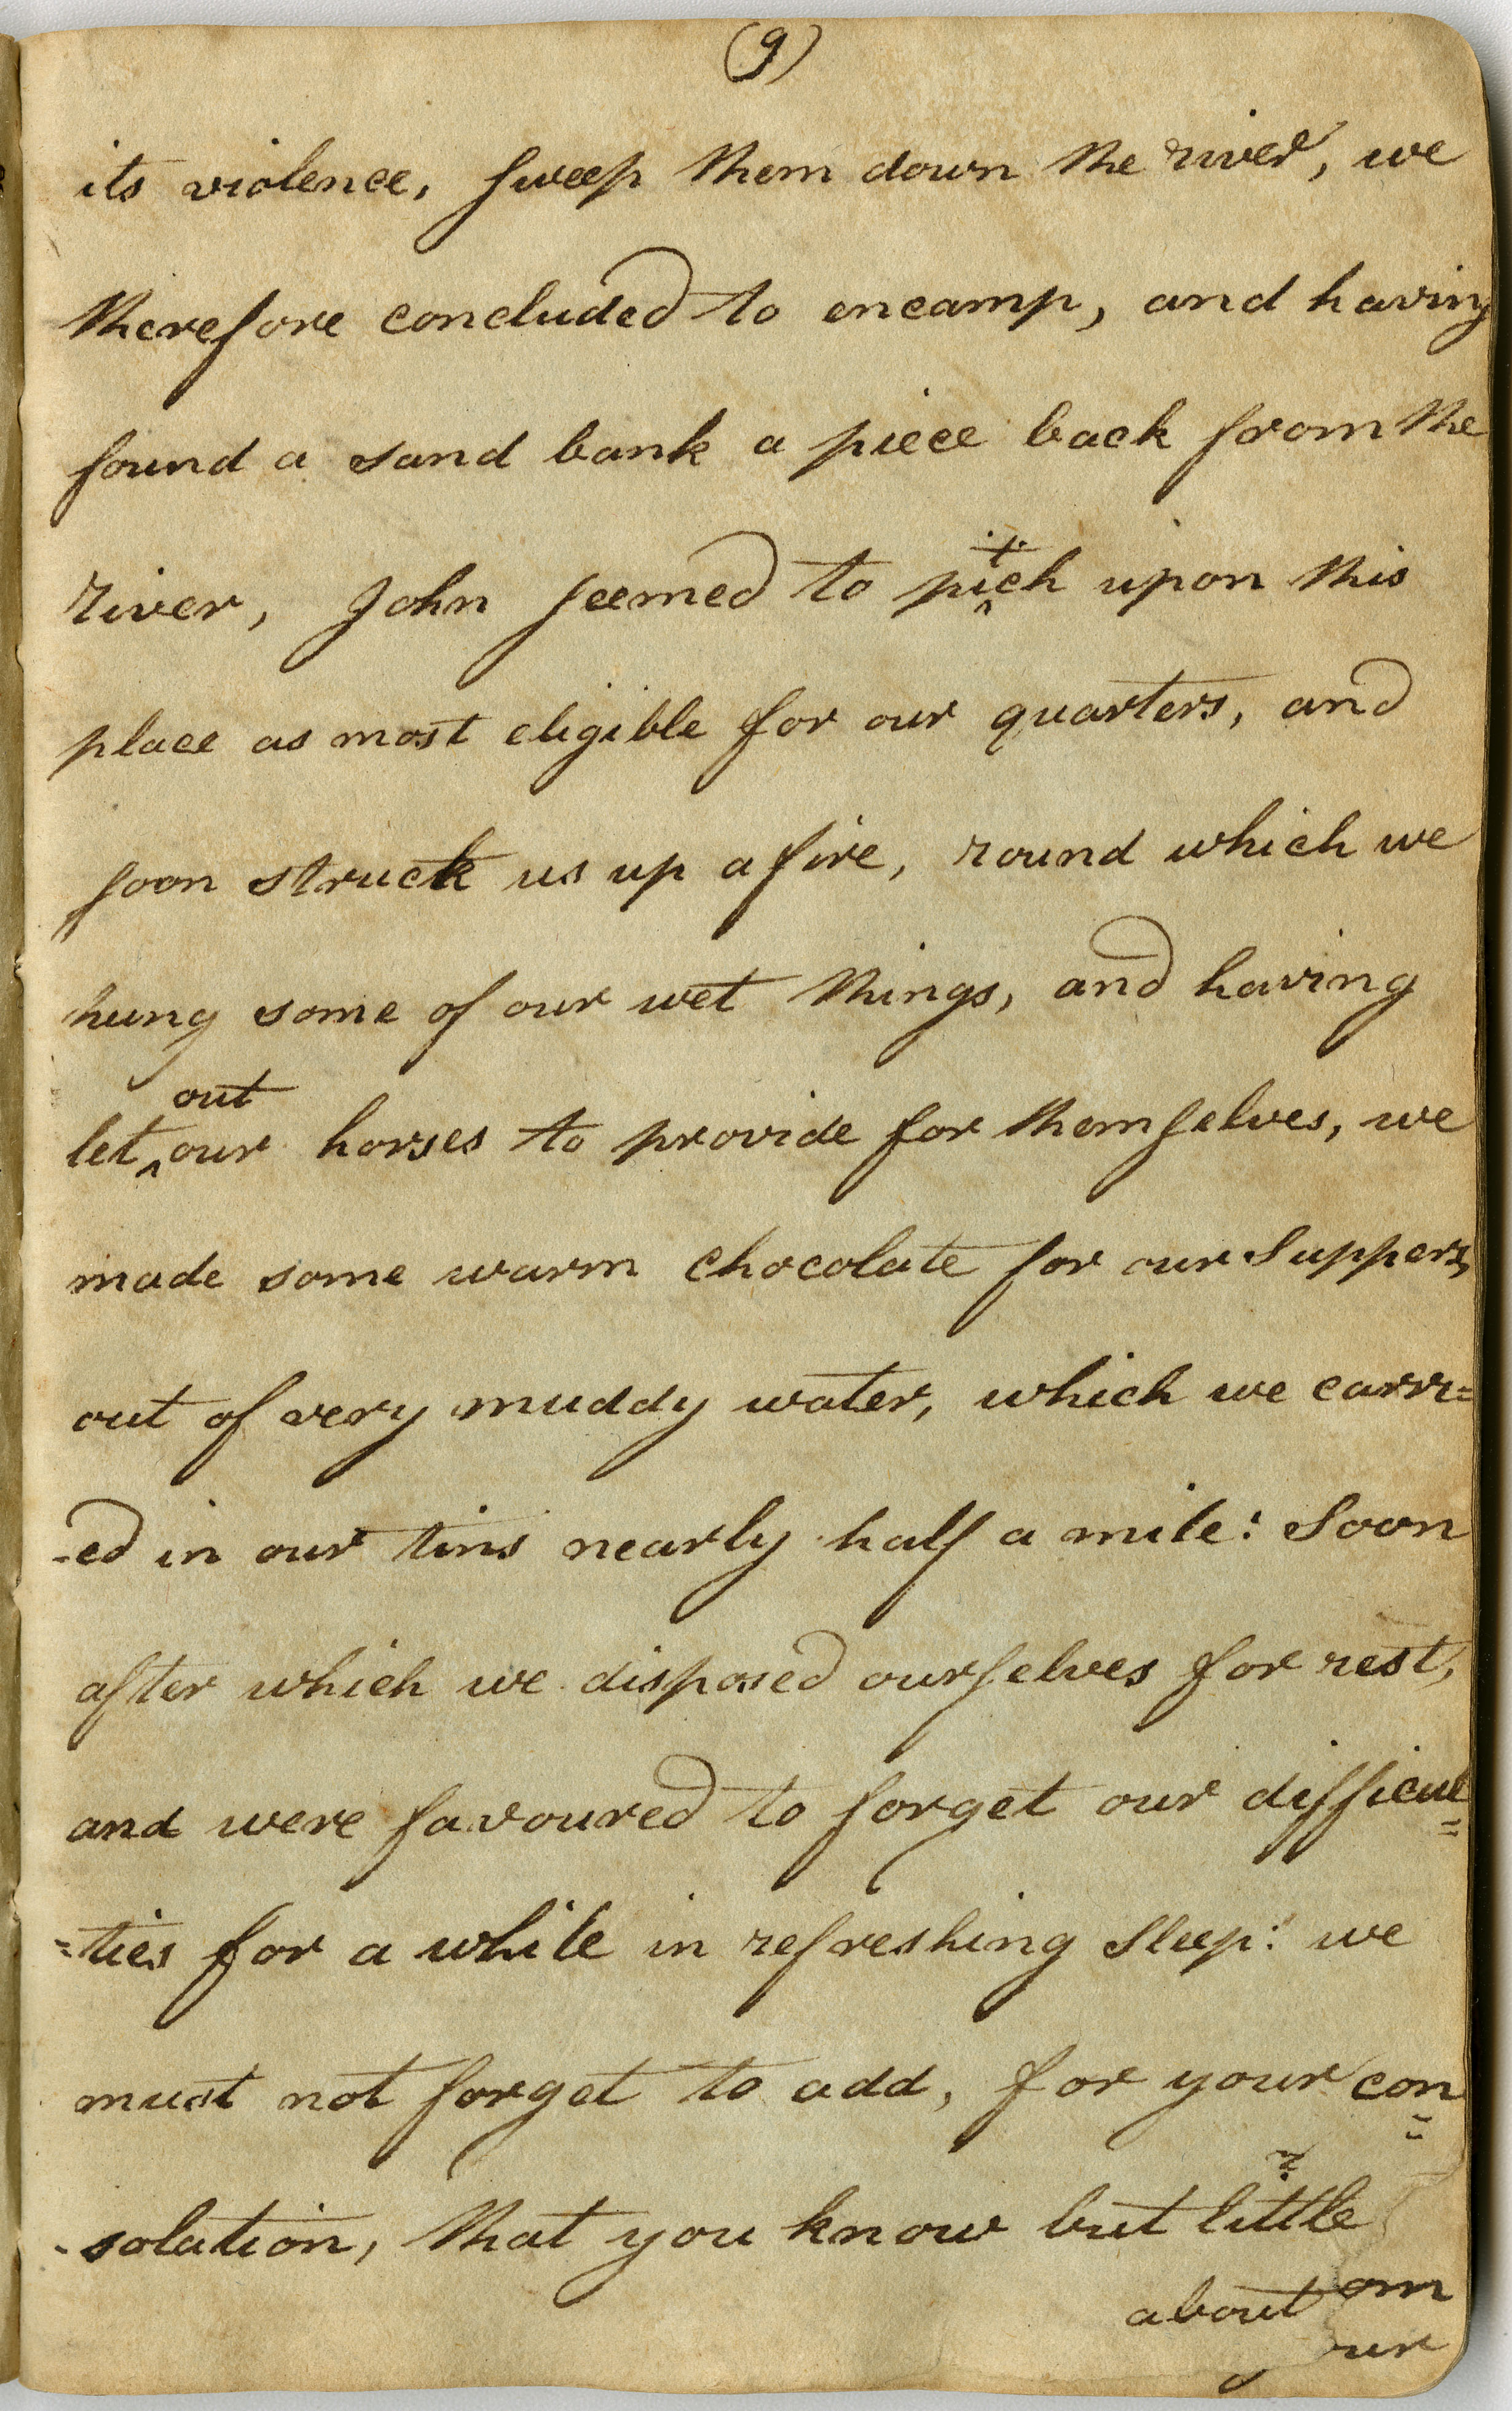 (9)
its violence, sweep them down the river, we
therefore concluded to encamp, and having
found a sand bank a piece back from the
river, John seemed to pi^tch upon this
place as most eligible for our quarters, and
soon struck us up a fire, round which we
hung some of our wet things, and having
let ^out our horses to provide for themselves, we
made some warm chocolate for our Suppers,
out of very muddy water, which we carri=
-ed in our tins nearly half a mile: Soon
after which we disposed ourselves for rest,
and were favoured to forget our difficul=
=ties for a while in refreshing Sleep: we
must not forget to add, for your con=
-solation, that you know but little
about